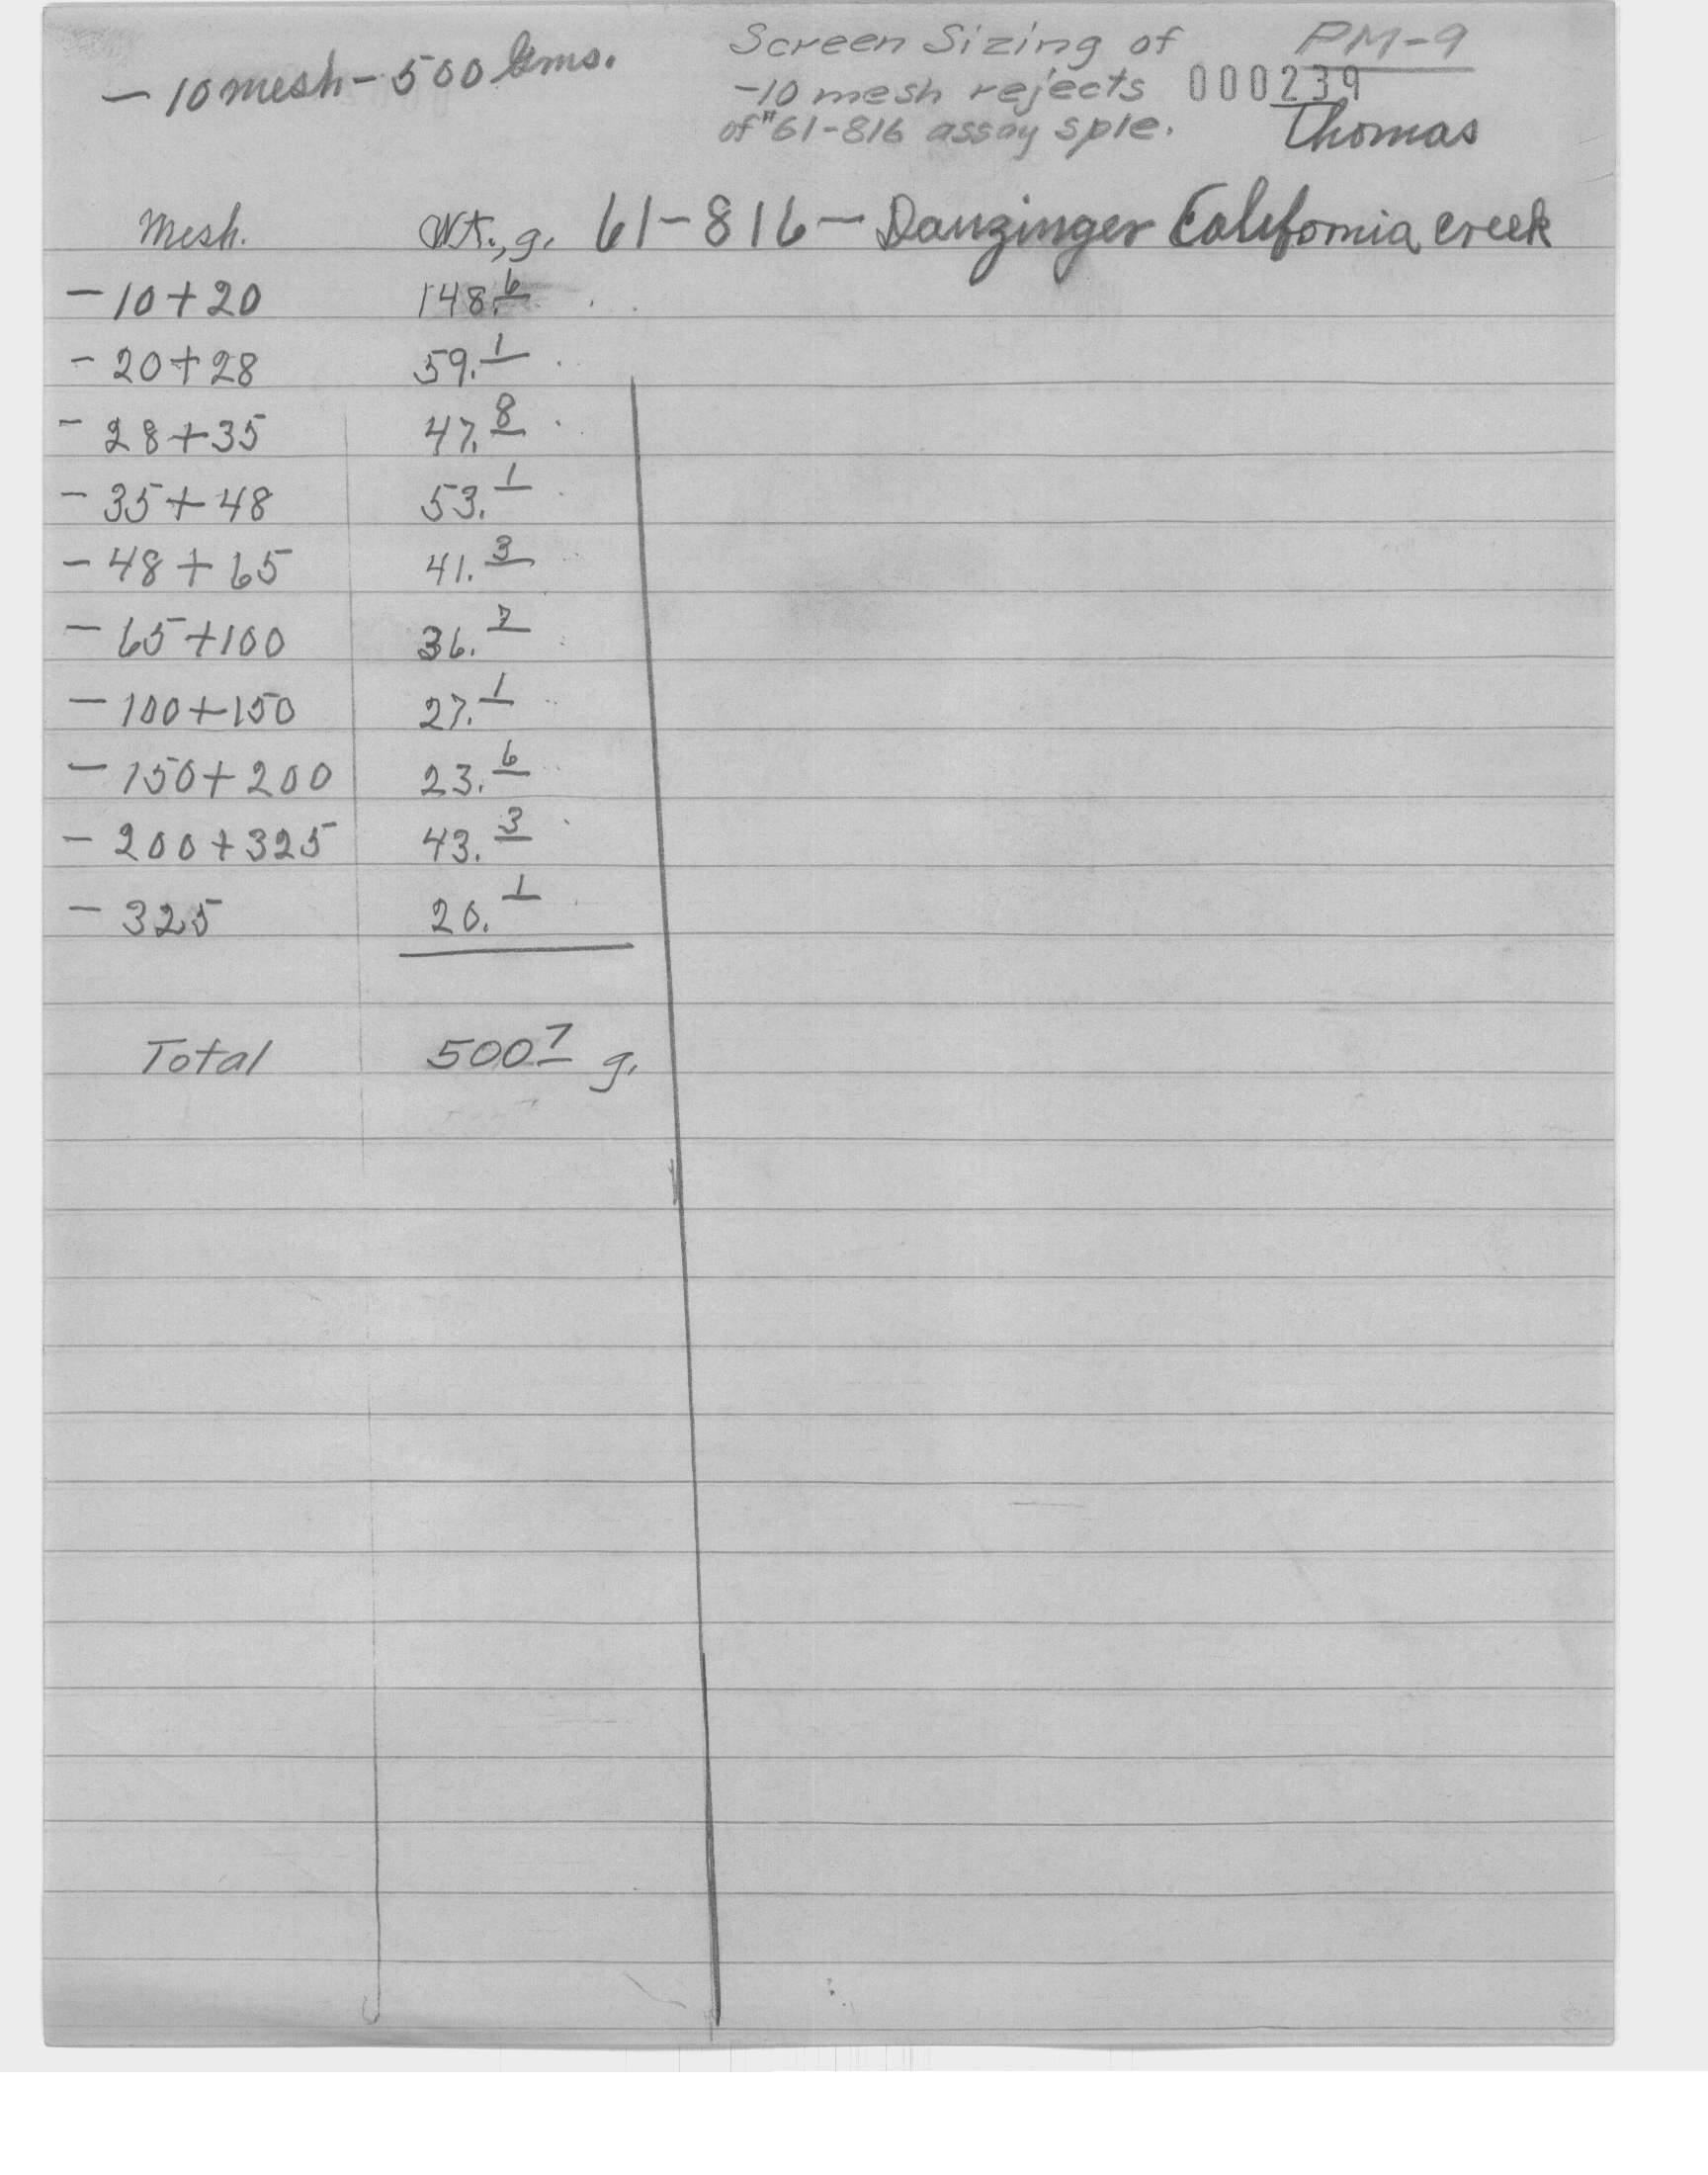 — 10 mesh – 500 Gms.
Screen Sizing of
-10 mesh rejects
of #61-816 assay sple.
PM-9
000239
Thomas
Mesh. Wt., g. 61-816 — Danzinger California creek
- 10+20 148.6
- 20+28 59.1
- 28+35 47.8
- 35+48 53.1
- 48+65 41.3
- 65+100 36.7
- 100+150 27.1
- 150+200 23.6
- 200+325 43.3
- 325 20.1
Total 500 7 g.